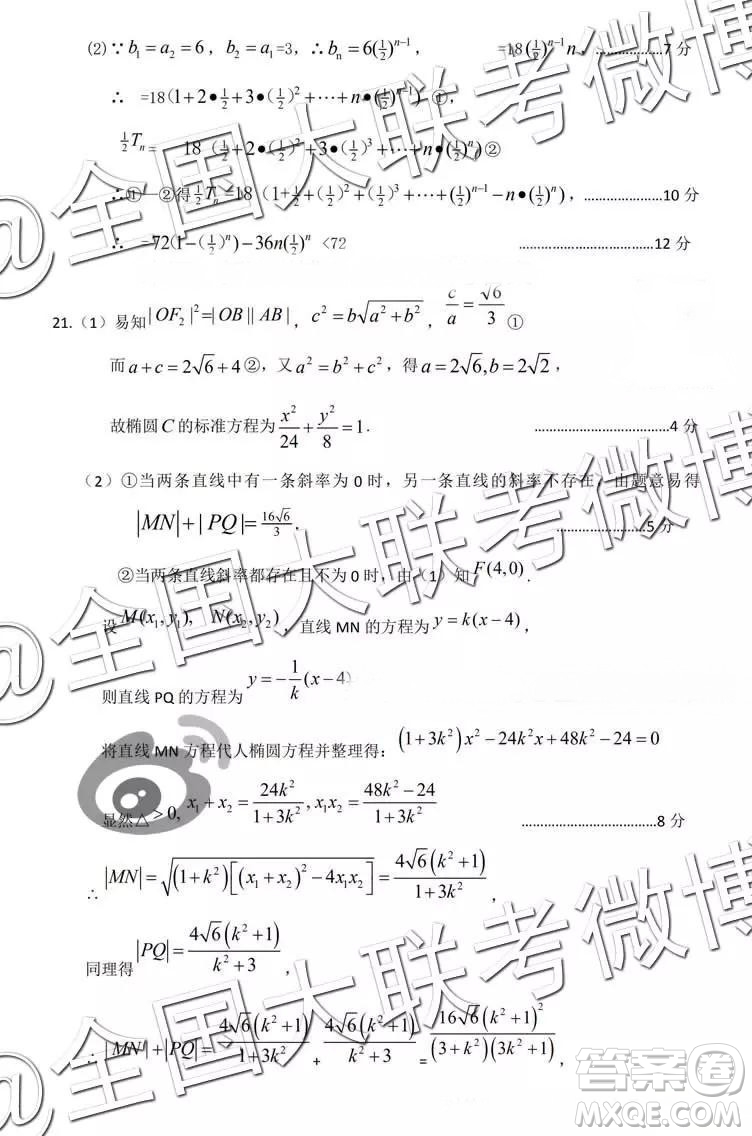 (2) ∵ b₁ = a₂ = 6，b₂ = a₁ =3，∴ bₙ = 6(1/2)ⁿ⁻¹， =18(1/2)ⁿ⁻¹n，………………7 分
∴ =18(1+2•1/2+3•(1/2)²+⋯+n•(1/2)ⁿ⁻¹) ①，
1/2 Tₙ = 18 (1/2+2•(1/2)²+3•(1/2)³+⋯+n•(1/2)ⁿ) ②
∴①—②得 1/2 Tₙ =18 (1+1/2+(1/2)²+(1/2)³+⋯+(1/2)ⁿ⁻¹−n•(1/2)ⁿ)，…………………10 分
∴ =72(1−(1/2)ⁿ)−36n(1/2)ⁿ <72 ………………………………12 分
21.（1）易知|OF₂|²=|OB||AB|，c²=b√(a²+b²)，c/a=√6/3 ①
而 a+c=2√6+4 ②，又 a²=b²+c²，得 a=2√6,b=2√2，
故椭圆 C 的标准方程为 x²/24+y²/8=1. ………………………………4 分
（2）①当两条直线中有一条斜率为 0 时，另一条直线的斜率不存在，由题意易得
|MN|+|PQ|=16√6/3. ……………………5 分
②当两条直线斜率都存在且不为 0 时，由（1）知 F(4,0).
设 M(x₁,y₁), N(x₂,y₂)，直线 MN 的方程为 y=k(x−4)，
则直线 PQ 的方程为 y=−1/k(x−4)
将直线 MN 方程代人椭圆方程并整理得：(1+3k²)x²−24k²x+48k²−24=0
显然△>0, x₁+x₂=24k²/(1+3k²), x₁x₂=(48k²−24)/(1+3k²) ………………………………8 分
∴ |MN|=√((1+k²)[(x₁+x₂)²−4x₁x₂])=4√6(k²+1)/(1+3k²)，
同理得 |PQ|=4√6(k²+1)/(k²+3)，
∴ |MN|+|PQ|=4√6(k²+1)/(1+3k²)+4√6(k²+1)/(k²+3)=16√6(k²+1)²/((3+k²)(3k²+1))，
@全国大联考微博
@全国大联考微博
@全国大联考微博
答案圈
MXQE.COM